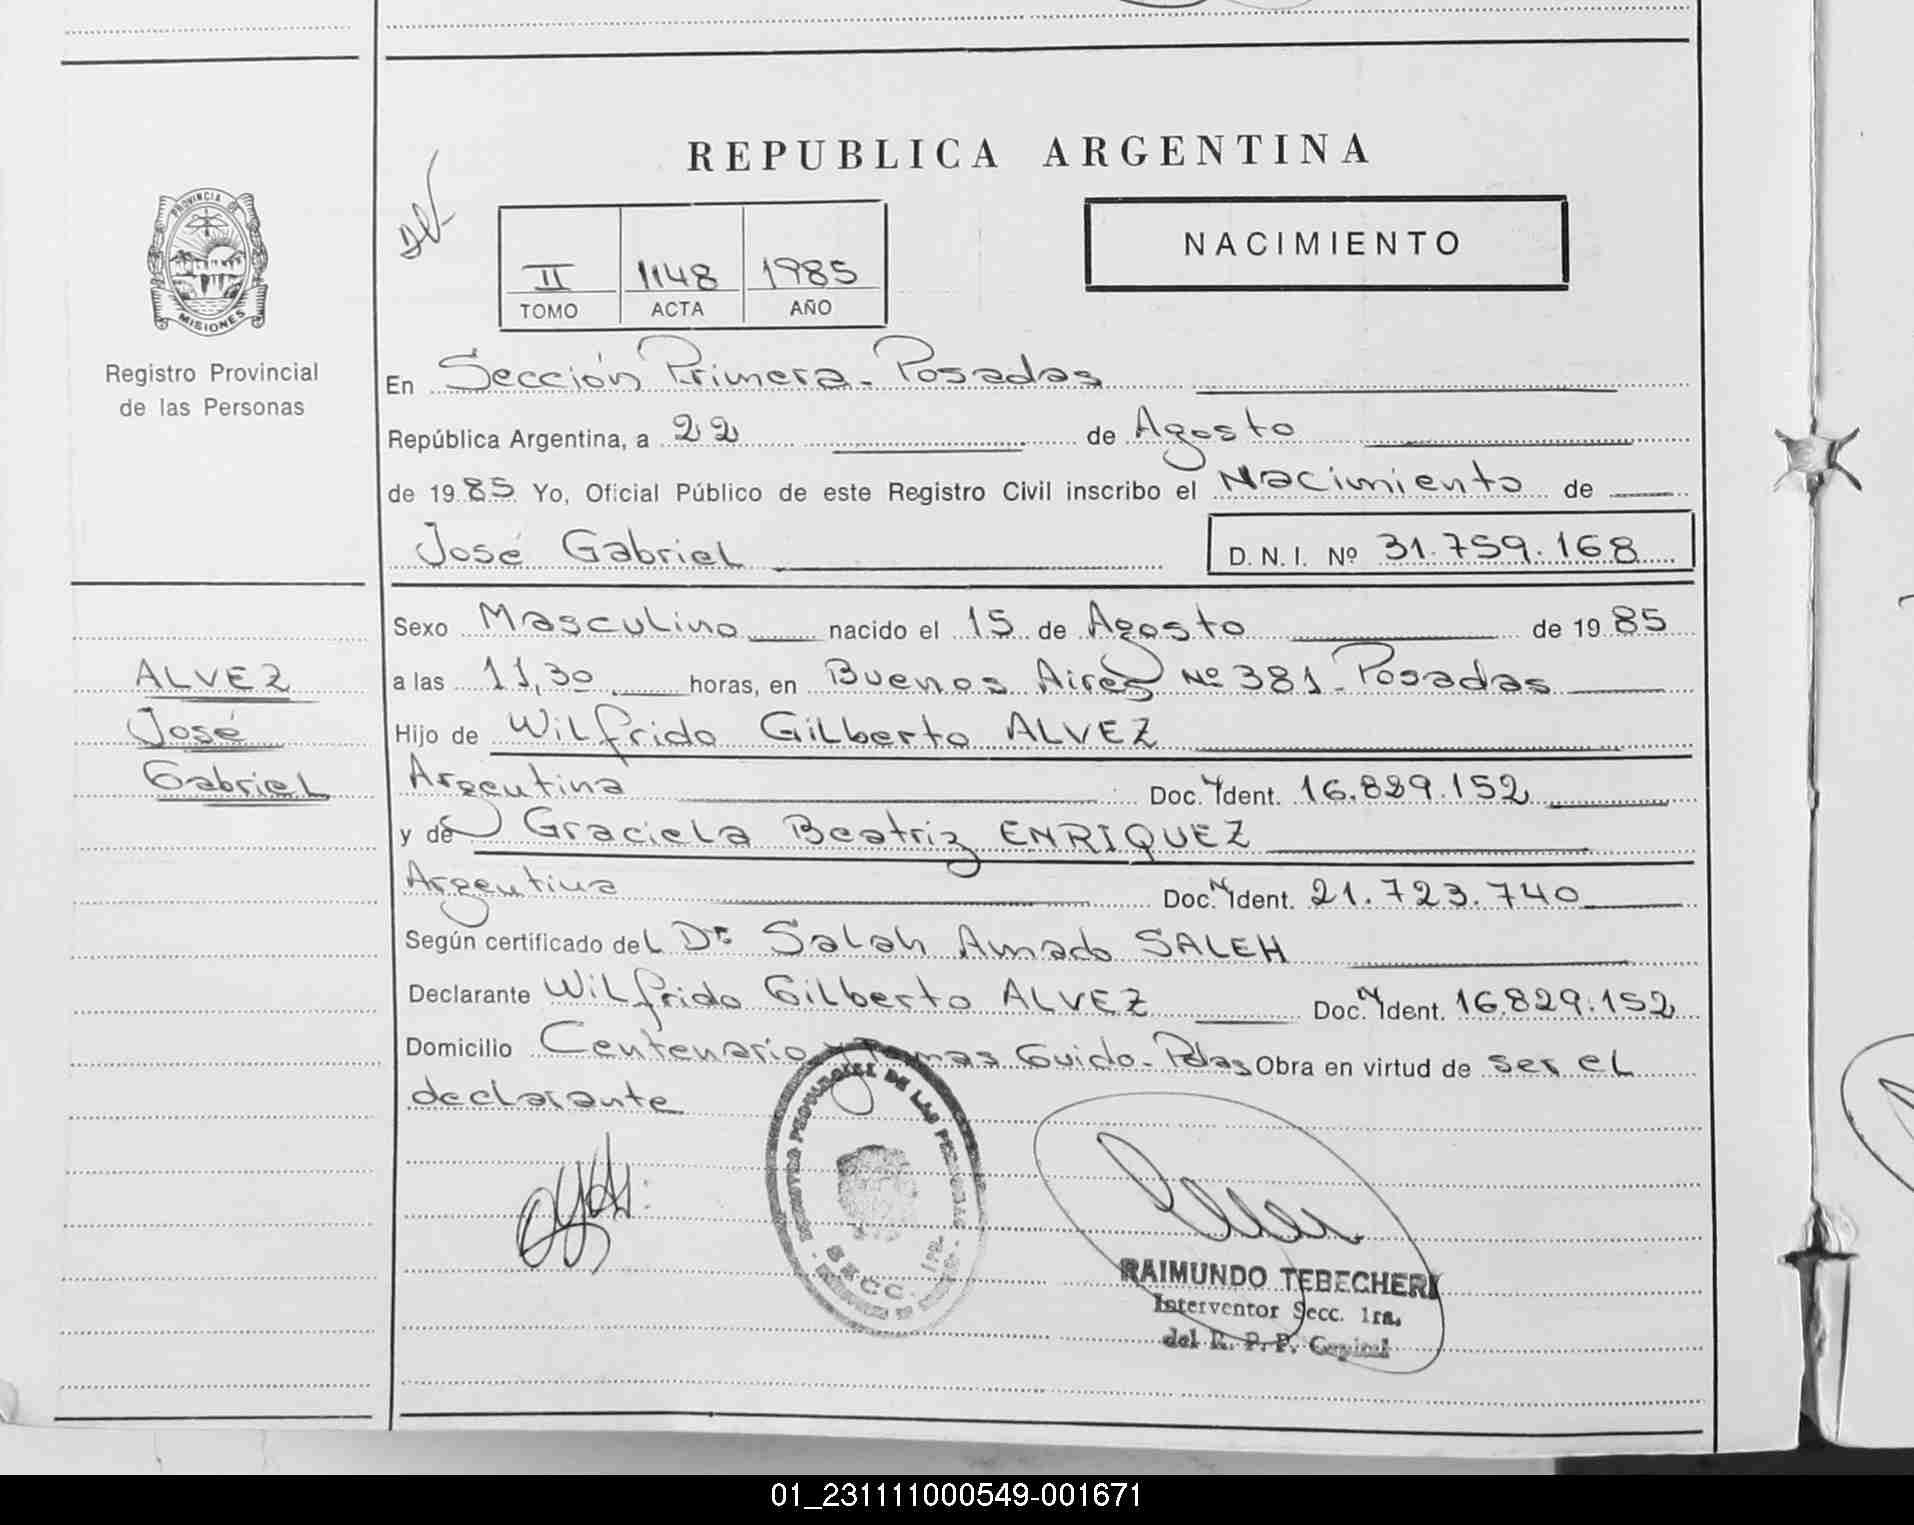 REPUBLICA ARGENTINA
PROVINCIA DE
MISIONES
Registro Provincial
de las Personas
II 1148 1985
TOMO ACTA AÑO
NACIMIENTO
En Sección Primera - Posadas
República Argentina, a 22 de Agosto
de 1985 Yo, Oficial Público de este Registro Civil inscribo el Nacimiento de
José Gabriel D.N.I. Nº 31.759.168
Sexo Masculino nacido el 15 de Agosto de 1985
a las 11,30 horas, en Buenos Aires Nº 381 - Posadas
Hijo de Wilfrido Gilberto ALVEZ
Argentina Doc. Ident. 16.829.152
y de Graciela Beatriz ENRIQUEZ
Argentina Doc. Ident. 21.723.740
Según certificado del Dr Salah Amado SALEH
Declarante Wilfrido Gilberto ALVEZ Doc. Ident. 16.829.152
Domicilio Centenario y Tomas Guido - Pdas Obra en virtud de ser el
declarante
ALVEZ
José
Gabriel
REGISTRO PROVINCIAL DE LAS PERSONAS
SECC. 1RA.
RAIMUNDO TEBECHERI
Interventor Secc. 1ra.
del R. P. P. Capital
01_231111000549-001671